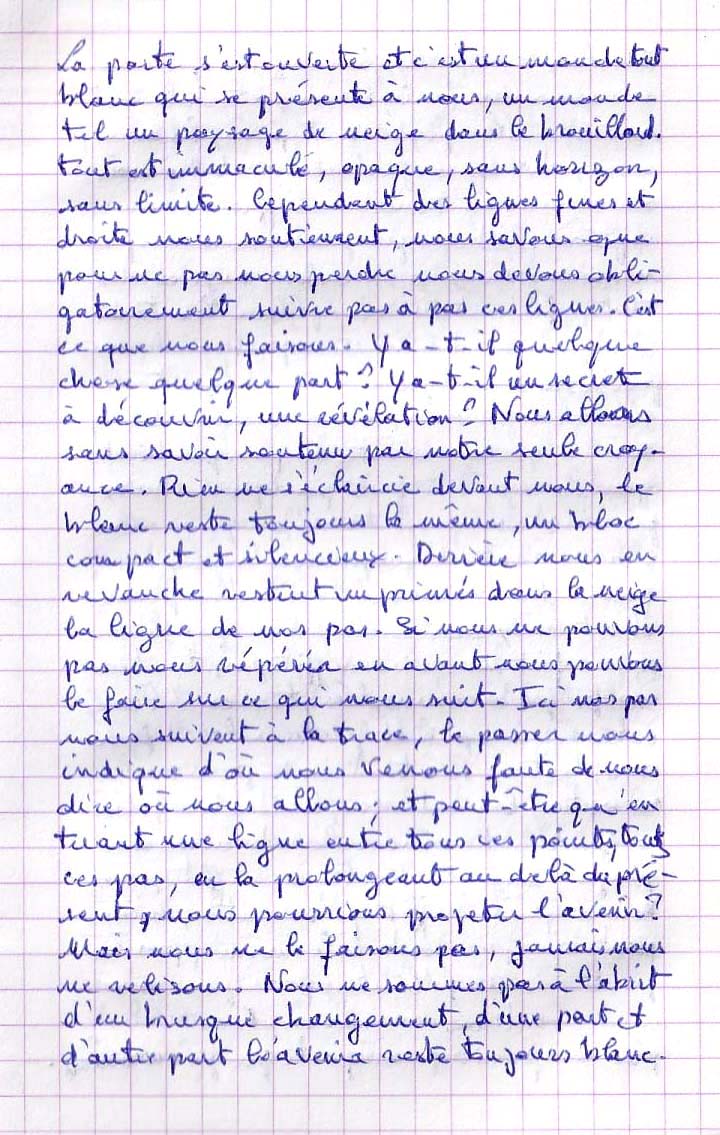 La porte s'est ouverte et c'est un monde tout
blanc qui se présente à nous, un monde
tel un paysage de neige dans le brouillard.
tout est immaculé, opaque, sans horizon,
sans limite. Cependant des lignes fines et
droite nous soutiennent, nous savons que
pour ne pas nous perdre nous devons obli-
gatoirement suivre pas à pas ces lignes. C'est
ce que nous faisons. Y a-t-il quelque
chose quelque part ? Y a-t-il un secret
à découvrir, une révélation ? Nous allons
sans savoir soutenu par notre seule croy-
ance. Rien ne s'éclaircie devant nous, le
blanc reste toujours le même, un bloc
compact et silencieux. Derrière nous en
revanche restent imprimés dans la neige
la ligne de nos pas. Si nous ne pouvons
pas nous répérer en avant nous pouvons
le faire sur ce qui nous suit. Ici nos pas
nous suivent à la trace, le passer nous
indique d'où nous venons faute de nous
dire où nous allons ; et peut-être qu'en
tirant une ligne entre tous ces points, tous
ces pas, en la prolongeant au delà du pré-
sent, nous pourrions projeter l'avenir ?
Mais nous ne le faisons pas, jamais nous
ne relisons. Nous ne sommes pas à l'abrit
d'un brusque changement, d'une part et
d'autre part l'avenir reste toujours blanc.